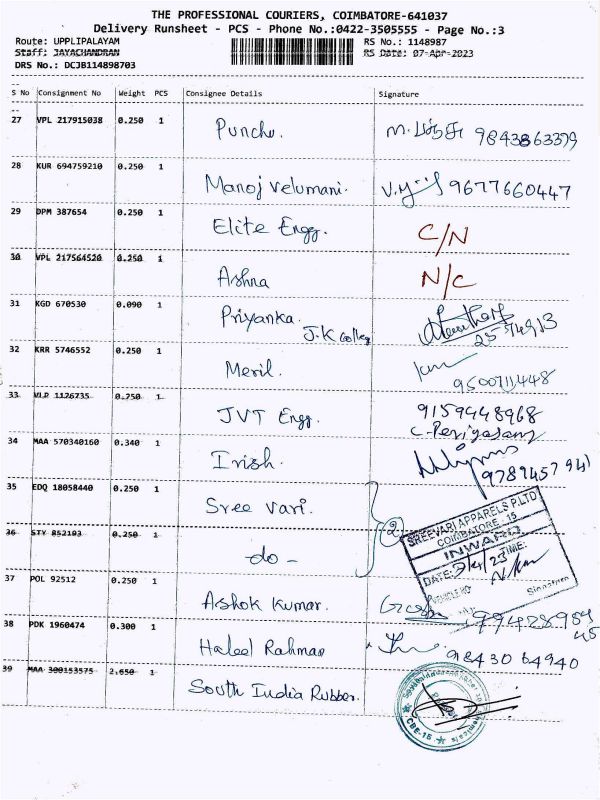 THE PROFESSIONAL COURIERS, COIMBATORE-641037
Delivery Runsheet - PCS - Phone No.:0422-3505555 - Page No.:3
Route: UPPLIPALAYAM RS No.: 1148987
Staff: JAYACHANDRAN RS Date: 07-Apr-2023
DRS No.: DCJB114898703
S No Consignment No Weight PCS Consignee Details Signature
27 VPL 217915038 0.250 1
Puncho. 9843863379
28 KUR 694759210 0.250 1
Manoj Velumani. 9677660447
29 DPM 387654 0.250 1
Elite Engg. C/N
30 VPL 217564520 0.250 1
Ashna N/C
31 KGD 670530 0.090 1
Priyanka. J.K College
32 KRR 5746552 0.250 1
Meril. 9500711448
33 VLP 1126735 0.250 1
JVT Engg. 9159448968
34 MAA 570340160 0.340 1 C. Periyasamy
Irish. 9789457941
35 EDQ 18058440 0.250 1
Sree Vari. 2
SREEVARI APPARELS P.LTD
COIMBATORE. 15
INWARD
36 STY 852193 0.250 1
-do-
DATE: TIME:
VEHICLE NO Signature
37 POL 92512 0.250 1
Ashok Kumar.
38 PDK 1960474 0.300 1
Haleel Rahman 98430 64940
39 MAA 300153575 2.650 1
South India Rubber.
CBE-15